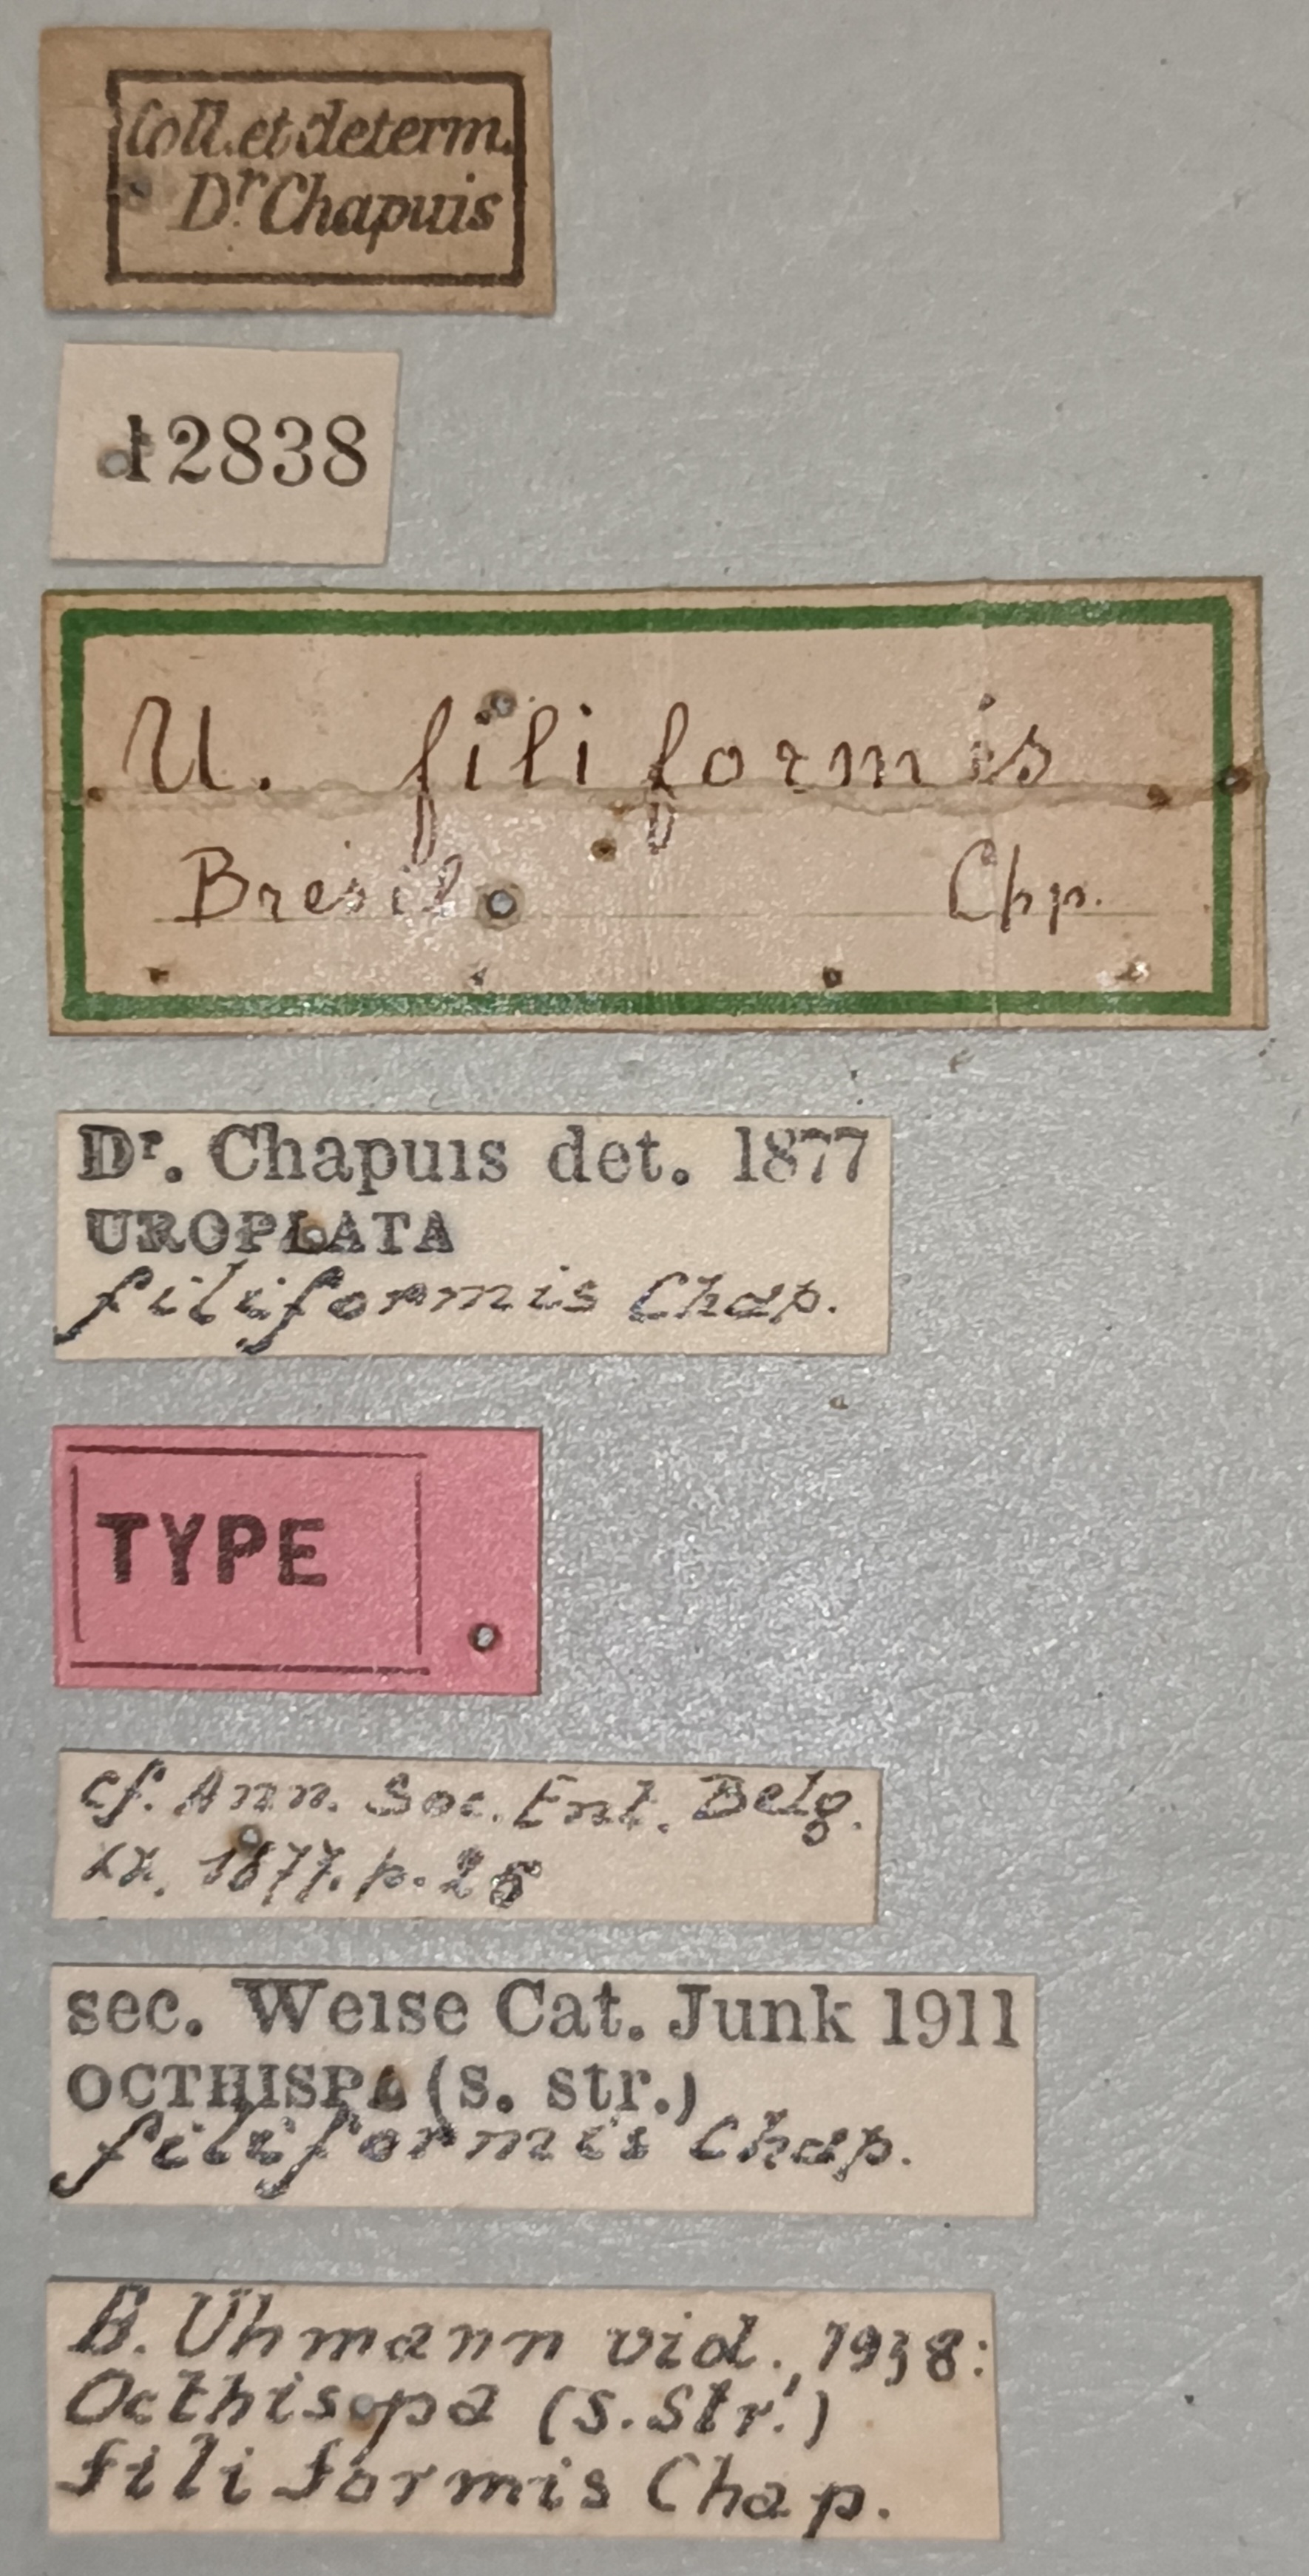 Coll. et determ.
Dr Chapuis
12838
U. filiformis
Bresil. Chp.
Dr. Chapuis det. 1877
UROPLATA
filiformis Chap.
TYPE
cf. Ann. Soc. Ent. Belg.
XX. 1877. p. 26
sec. Weise Cat. Junk 1911
OCTHISPA (s. str.)
filiformis Chap.
B. Uhmann vid. 1938:
Octhispa (s. str.)
filiformis Chap.